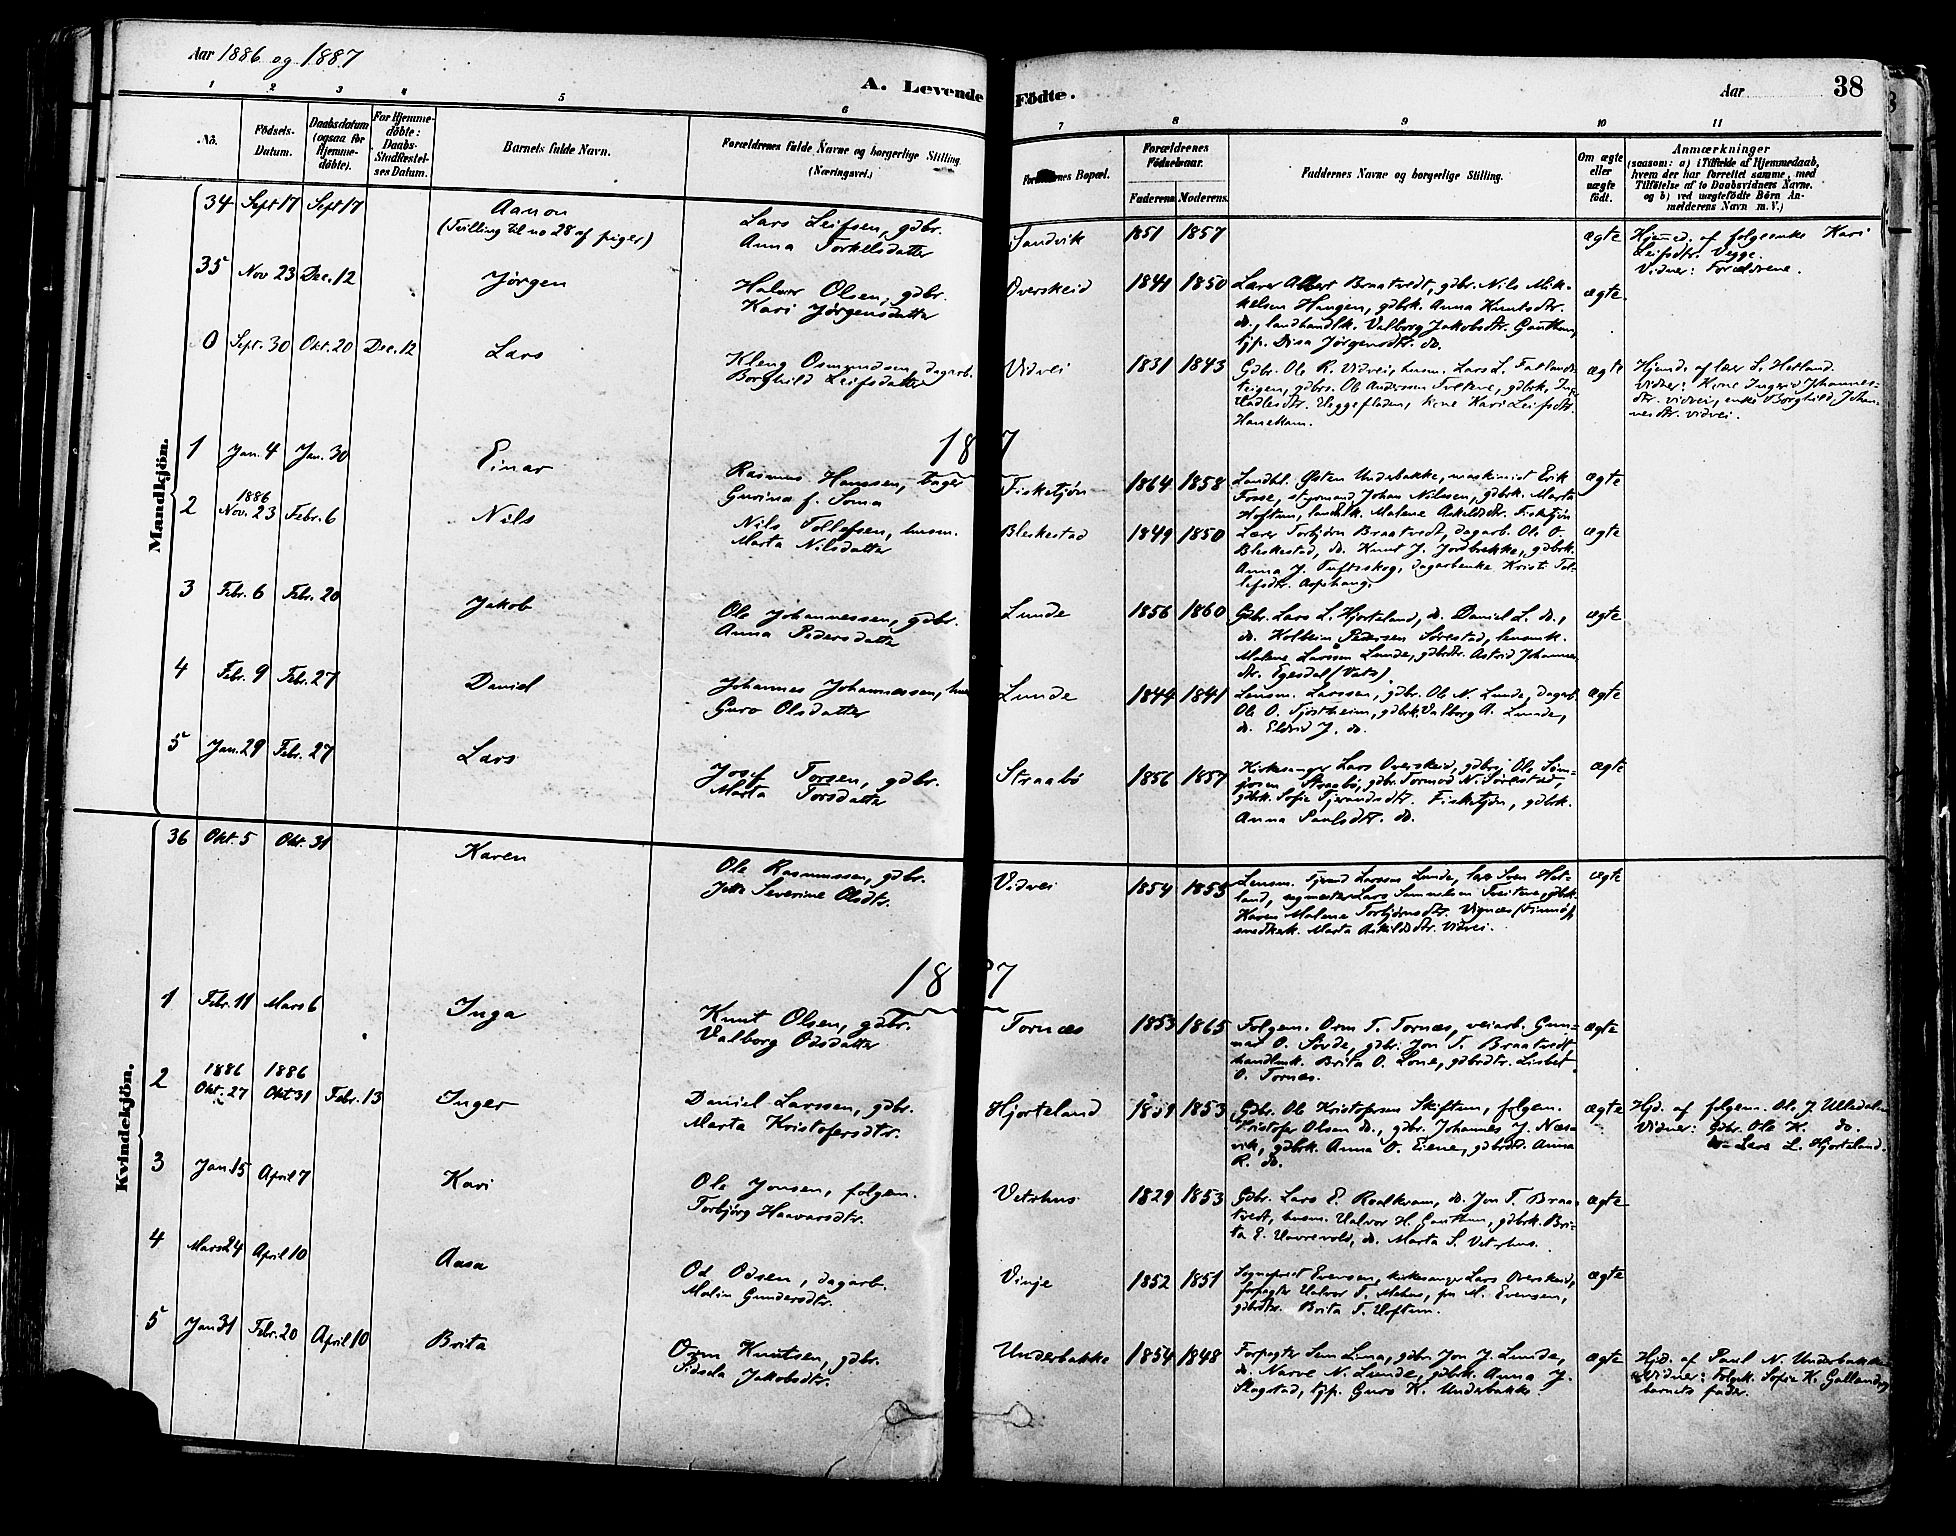 Aar 1886 og 1887
A. Levende Födte.
Aar 38
1 2 3 4 5 6 7 8 9 10 11
No.
Födsels-
Datum.
Daabsdatum
(ogsaa for
Hjemme-
döbte).
For Hjemme-
döbte:
Daabs-
Stadfæstel-
ses Datum.
Barnets fulde Navn.
Forældrenes fulde Navne og borgerlige Stilling
(Næringsvei.)
Forældrenes Bopæl.
Forældrenes
Födselsaar.
Faderens Moderens
Faddernes Navne og borgerlige Stilling.
Om ægte
eller
uægte
födt.
Anmærkninger
(saasom: a) i Tilfælde af Hjemmedaab,
hvem der har forrettet samme, med
Tilföielse af to Daabsvidners Navne.
og b) ved uægtefödte Börn An-
melderens Navn m. V.)
Mandkjön.
34 Sept 17 Sept 17
Aanon
(Tvilling til no 28 af piger)
Lars Leifsen, gdbr.
Anna Torkelsdatter
Sandvik 1851 1857
ægte
Hjemmed. af folgeenke Kari
Leifsdtr. Vegge.
Vidner: Forældrene.
35 Nov 23 Dec. 12
Jørgen
Halvor Olsen, gdbr.
Kari Jørgensdatter
Overskeid 1841 1850
Lærer Albert Braatvedt, gdbr. Nils Mik-
kelsen Haugen, gdbrk. Anna Knutsdtr.
do., landhandlk. Valborg Jakobsdtr. Gauthun,
tjp. Disa Jørgensdtr. do.
ægte
0 Sept. 30 Okt. 20 Dec. 12
Lars
Kleng Osmundsen, dagarb.
Borghild Leifsdatter
Vidvei 1831 1843
Gdbr. Ole R. Vidvei, husm. Lars L. Fatland-
steigen, gdbrs. Ole Andersen Tveitene, gdbrk. Inga
Vadlesdtr. Veggefladen, kone Kari Leifsdtr.
Hanekam.
ægte
Hjemd. af lær. S. Hetland.
Vidner: Kone Ingerid Johannes-
dtr. Vidvei, enke Borghild Johan-
nesdtr. Vidvei.
1887
1 Jan. 4 Jan. 30
Einar
Rasmus Hanssen, bager
Gurina f. Soma
Fisketjøn 1864 1858
Landhl. Østen Underbakke, maskinist Erik
Fosse, styrmand Johan Nilssen, gdbrk. Marta
Hoftun, landhlk. Malene Askildsdtr. Fisketjøn
ægte
2 1886
Nov. 23 Febr. 6
Nils
Nils Tollefsen, husm.
Marta Nilsdatter
Bleskestad 1849 1850
Lærer Torbjørn Braatvedt, dagarb. Ole O.
Bleskestad, do. Knut J. Jordbrekke, gdbrk.
Anna J. Tuftsskog, dagarbenke Kristi Tol-
lefsdtr. Asphaug.
ægte
3 Febr. 6 Febr. 20
Jakob
Ole Johannessen, gdbr.
Anna Pedersdatter
Lunde 1856 1860
Gdbr. Lars L. Hjorteland, do. Daniel L. do.,
do. Kolbein Pedersen Sørestad, lensmk.
Malene Larssen Lunde, gdbrdtr. Astrid Johannes-
dtr. Egesdal (Vats).
ægte
4 Febr. 9 Febr. 27
Daniel
Johannes Johannessen, husm.
Guro Olsdatter
Lunde 1844 1841
Lensm. Larssen, gdbr. Ole N. Lunde, dagarb.
Ole O. Tjøstheim, gdbrk. Valborg A. Lunde,
do. Eldrid J. do.
ægte
5 Jan. 29 Febr. 27
Lars
Josef Torsen, gdbr.
Marta Torsdatter
Straabø 1856 1857
Kirkesanger Lars Overskeid, gdbrs. Ole Sim-
onsen Straabø, gdbr. Tormod N. Sørestad,
gdbrk. Sofie Tjerandsdtr. Fisketjøn, gdbrk.
Anna Paulsdtr. do.
ægte
Kvindekjön.
36 Okt. 5 Okt. 31
Karen
Ole Rasmussen, gdbr.
Jette Severine Olsdtr.
Vidvei 1854 1855
Lensm. Tjerand Larssen Lunde, lær. Sven Het-
land, Lars Samuelsen Tveitene, gdbrk.
Karen Malene Torbjørnsdtr. Vignæs (Finnø),
smedkerk. Marta Askildsdtr. Vidvei.
ægte
1887
1 Febr. 11 Mars 6
Inga
Knut Olsen, gdbr.
Valborg Odsdatter
Tornæs 1853 1865
Folgem. Orm T. Tornæs, veiarb. Gun-
nar O. Søvde, gdbr. Jon T. Braatvedt
handlmk. Brita O. Lone, gdbrdtr. Lisbet
O. Tornæs.
ægte
2 1886 1886
Okt. 27 Okt 31 Febr. 13
Inger
Daniel Larssen, gdbr.
Marta Kristofersdtr.
Hjorteland 1859 1853
Gdbr. Ole Kristofersen Skiftun, folgem.
Kristofer Olsen do., gdbr. Johannes J. Næs-
vik, gdbrk. Anna O. Eiene, gdbrdtr. Anna
R. do.
ægte
Hjd. af folgem. Ole J. Ulladalen
Vidner: Gdbr. Ole K. do.
Lars L. Hjorteland.
3 Jan 15 April 7
Kari
Ole Jonsen, folgem.
Torbjørg Haavarsdtr.
Vetrhus 1829 1853
Gdbr. Lars E. Roalkvam, do. Jon T. Braa-
tvedt, husm. Halvor H. Gauthun, gdbrk. Bri-
ta E. Havrevold, do. Marta S. Vetrhus.
ægte
4 Mars 24 April 10
Aasa
Od Odsen, dagarb.
Malin Gundersdtr.
Vinje 1852 1851
Sognepræst Evensen, kirkesanger Lars Overskeid,
forpagter Halvor T. Mehus, fru M. Evensen,
gdbrdtr. Brita T. Hoftun.
ægte
5 Jan 31 Febr. 20 April 10
Brita
Orm Knutsen, gdbr.
Sidsela Jakobsdtr.
Underbakke 1854 1848
Forpagter Sem Luna, gdbr. Jon J. Lunde,
do. Narve N. Lunde, gdbrk. Anna J.
Skogstad, tjp. Guro K. Underbakke
ægte
Hjd. af Paul N. Underbakke
Vidner: Folgk. Sofie K. Galland og
barnets fader.